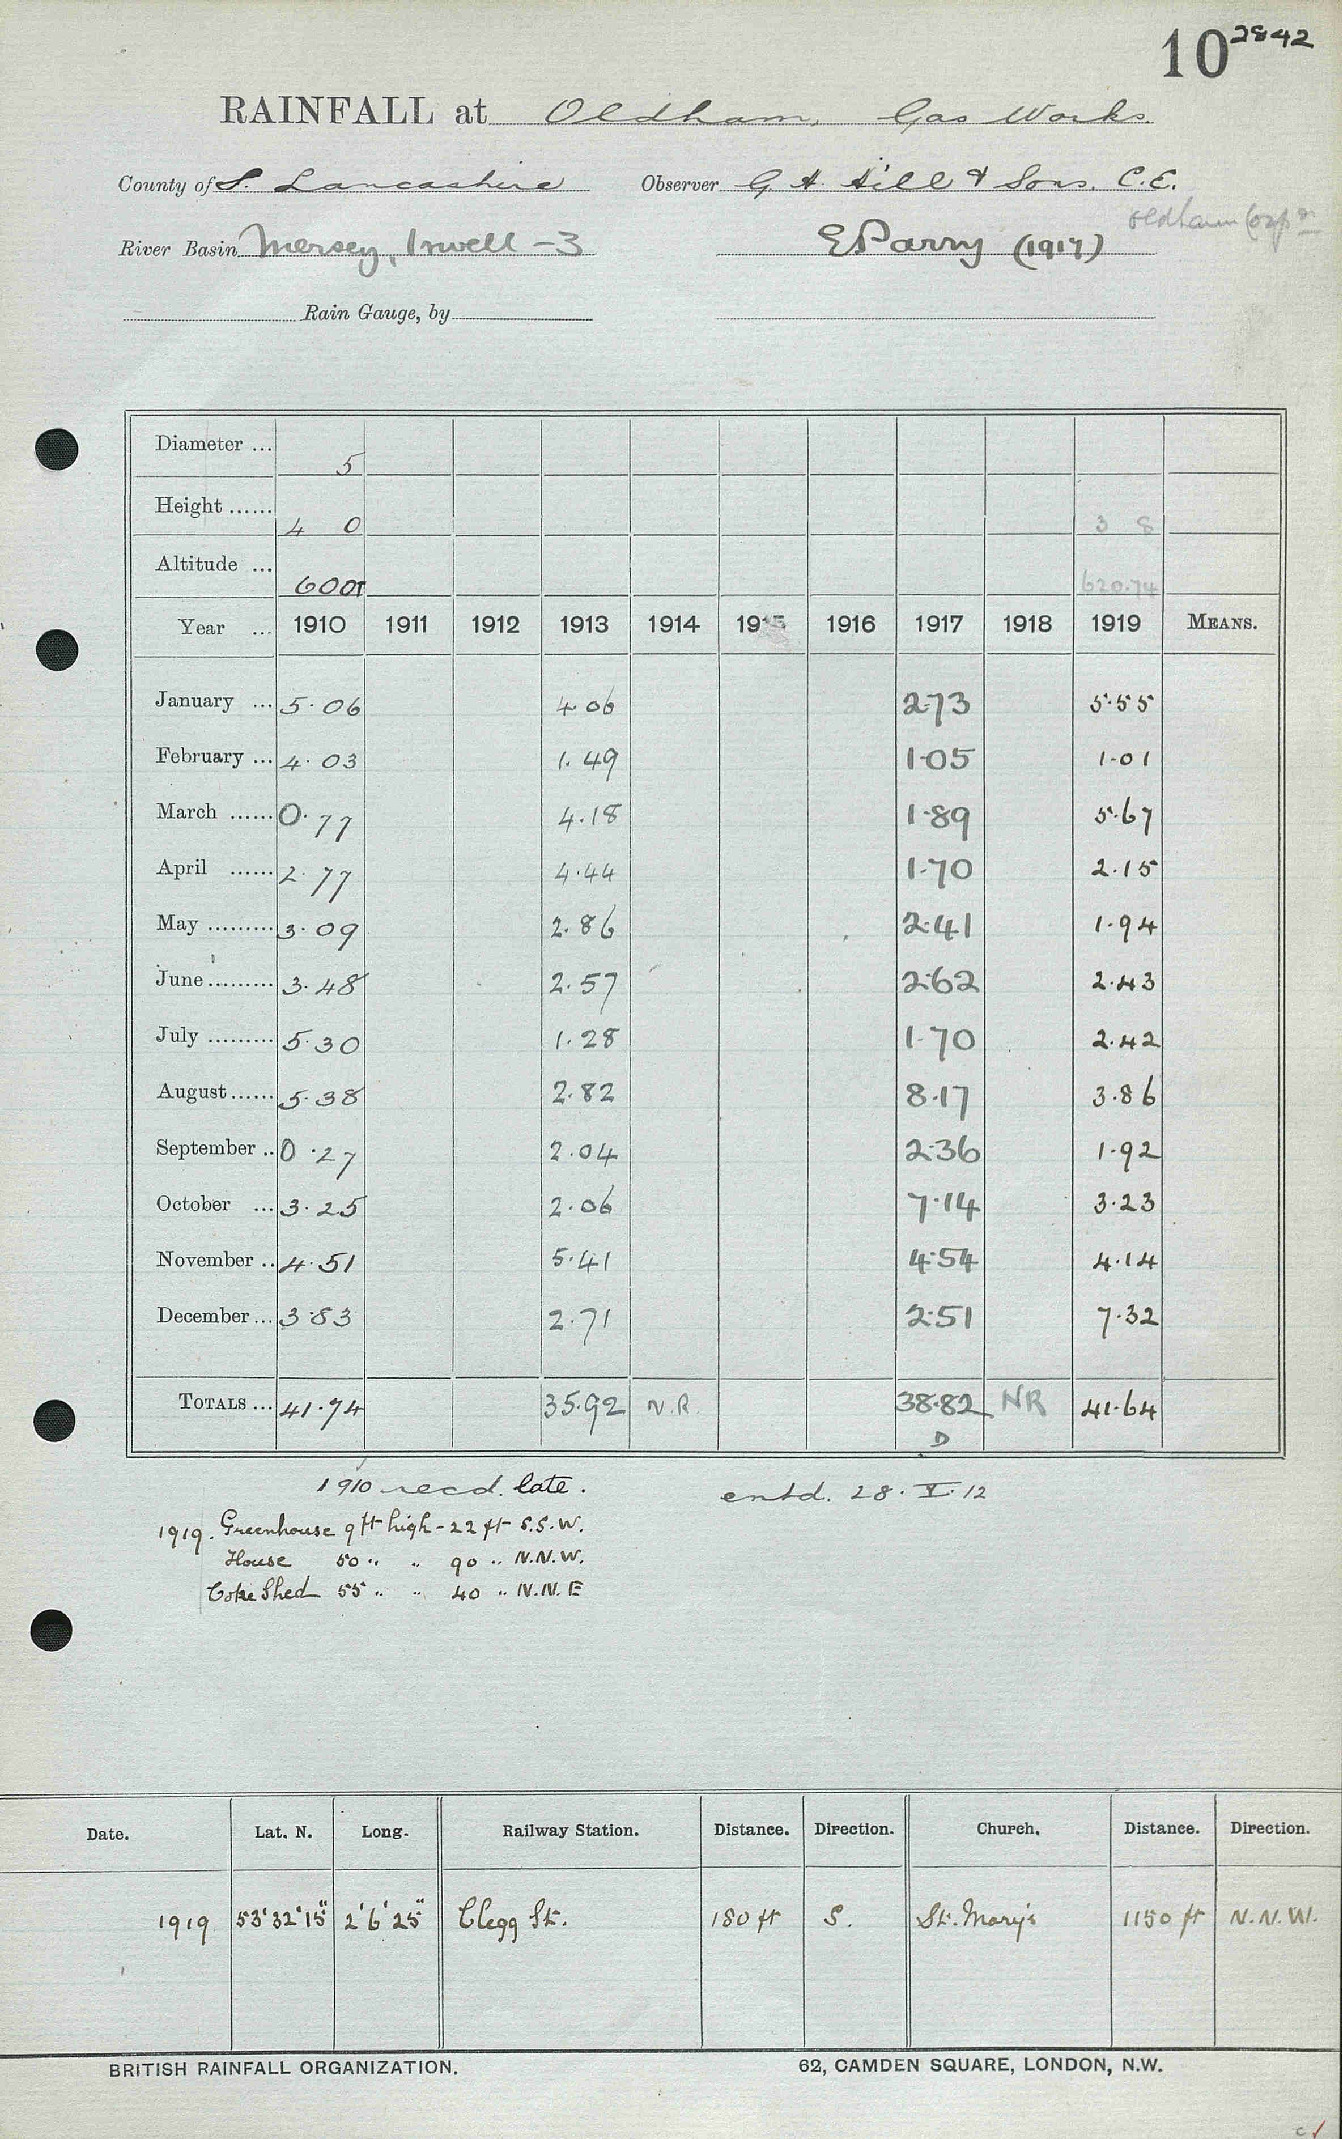 10 2842
RAINFALL at Oldham, Gas Works.
County of S. Lancashire Observer G. H. Hill & Sons. C.E.
Oldham Corpn
River Basin Mersey, Irwell - 3 E Parry (1917)
Rain Gauge, by
Diameter ... 5
Height ...... 4 0 3 8
Altitude ... 600T 620.74
Year ... 1910 1911 1912 1913 1914 1915 1916 1917 1918 1919 MEANS.
January ... 5.06 4.06 2.73 5.55
February ... 4.03 1.49 1.05 1.01
March ...... 0.77 4.18 1.89 5.67
April ...... 2.77 4.44 1.70 2.15
May ......... 3.09 2.86 2.41 1.94
June ......... 3.48 2.57 2.62 2.43
July ......... 5.30 1.28 1.70 2.42
August ...... 5.38 2.82 8.17 3.86
September .. 0.27 2.04 2.36 1.92
October ... 3.25 2.06 7.14 3.23
November .. 4.51 5.41 4.54 4.14
December ... 3.83 2.71 2.51 7.32
TOTALS ... 41.74 35.92 N.R. 38.82 NR 41.64
D
1910 recd. late. entd. 28.V.12
1919. Greenhouse 9 ft high - 22 ft S.S.W.
House 50 " " 90 " N.N.W.
Coke Shed 55 " " 40 " N.N.E
Date. Lat. N. Long. Railway Station. Distance. Direction. Church. Distance. Direction.
1919 53°32'15" 2°6'25" Clegg St. 180 ft S. St. Mary's 1150 ft N.N.W.
BRITISH RAINFALL ORGANIZATION. 62, CAMDEN SQUARE, LONDON, N.W.